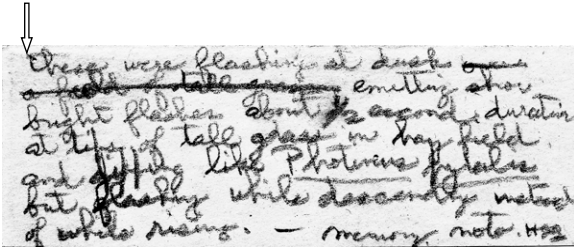 These were flashing at dusk
a field of tall grass emitting short
bright flashes about 1/2 second duration
at tips of tall grass in hay field.
and flying like Photinus pyralis
but flashing while descending instead
of while rising. — memory note. HSB